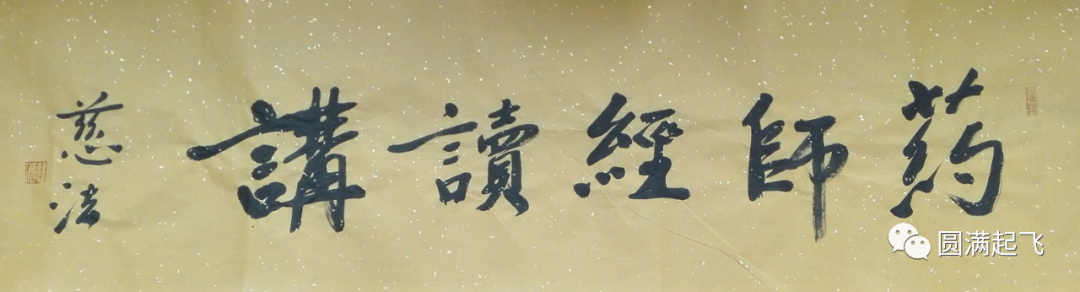 药師經讀講
慈法
圆满起飞